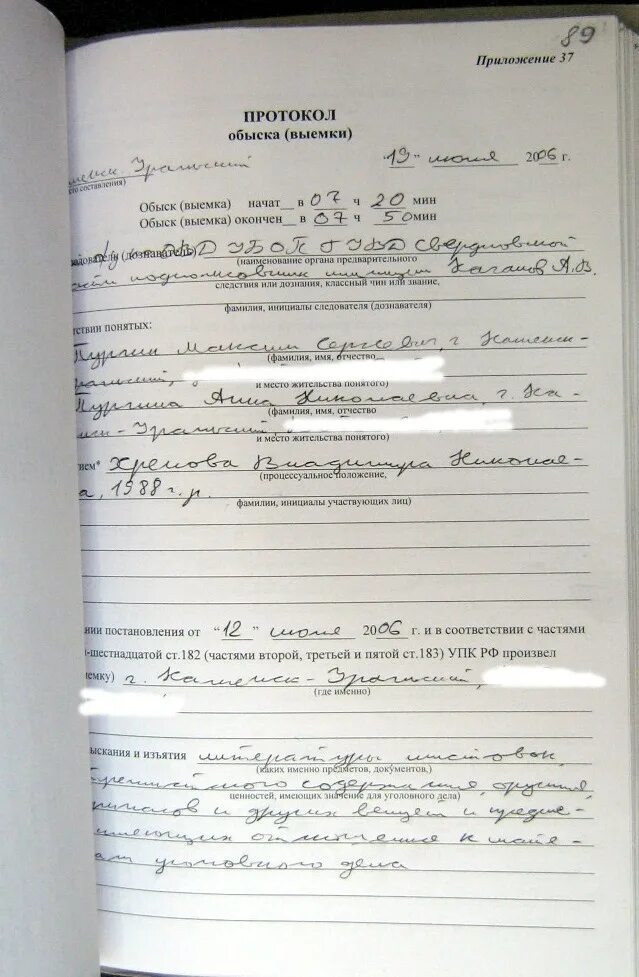 89
Приложение 37
ПРОТОКОЛ
обыска (выемки)
Уральский "13" июня 2006 г.
составления)
Обыск (выемка) начат в 07 ч 20 мин
Обыск (выемка) окончен в 07 ч 50 мин
(дознаватель) УБОП ГУВД Свердловской
(наименование органа предварительного
подполковник милиции А.В.
следствия или дознания, классный чин или звание,
фамилия, инициалы следователя (дознавателя)
тствии понятых:
Пургин Максим Сергеевич, г. Каменск-
(фамилия, имя, отчество
Уральский,
и место жительства понятого)
Пургина Анна Николаевна, г. Ка-
(фамилия, имя, отчество
к-Уральский,
и место жительства понятого)
ием* Хренова Владимира Николае-
(процессуальное положение,
а, 1988 г.р.
фамилии, инициалы участвующих лиц)
нии постановления от "12" июня 2006 г. и в соответствии с частями
-шестнадцатой ст.182 (частями второй, третьей и пятой ст.183) УПК РФ произвел
емку) г. Каменск-Уральский,
(где именно)
ыскания и изъятия литературы, листовок,
(каких именно предметов, документов,)
содержания, оружия,
ценностей, имеющих значение для уголовного дела)
и других вещей и предме-
имеющих отношение к мате-
ам уголовного дела